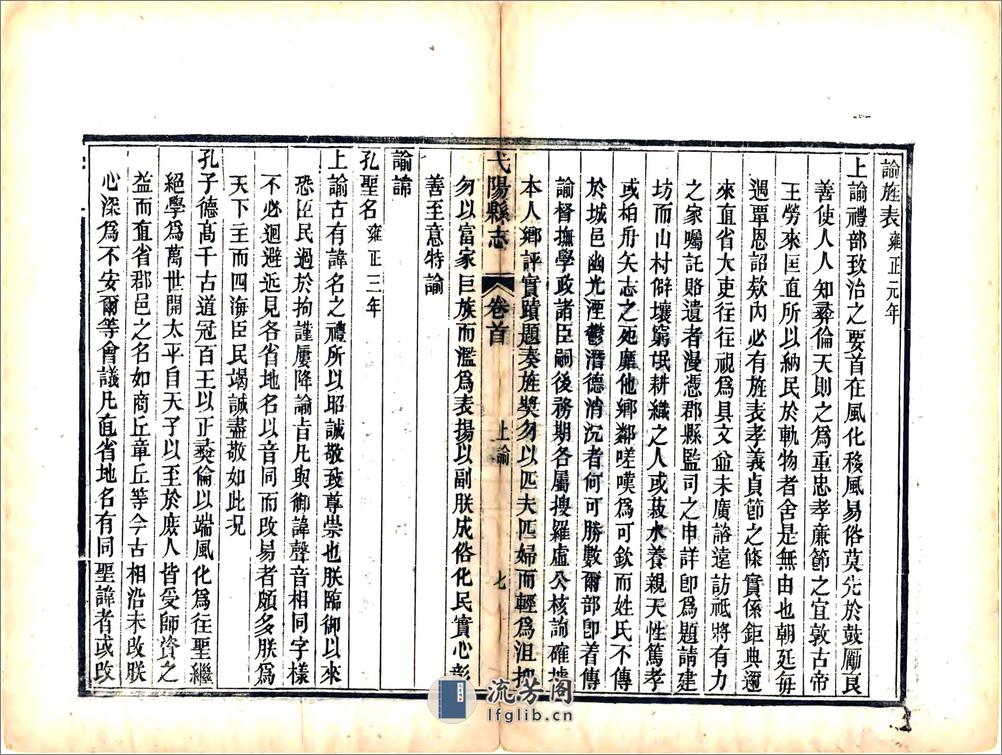 諭旌表雍正元年
上諭禮部致治之要首在風化移風易俗莫先於鼓勵良
善使人人知彞倫天則之為重忠孝廉節之宜敦古帝
王勞來匡直所以納民於軌物者舍是無由也朝廷每
遇覃恩詔欵內必有旌表孝義貞節之條實係鉅典邇
來直省大吏往往視為具文並未廣諮遠訪祗將有力
之家囑託賂遺者漫憑郡縣監司之申詳卽為題請建
坊而山村僻壤窮氓耕織之人或菽水養親天性篤孝
或柏舟矢志之死靡他鄉鄰嗟嘆為可欽而姓氏不傳
於城邑幽光湮鬱潛德消沉者何可勝數爾部卽着傳
諭督撫學政諸臣嗣後務期各屬搜羅虛公核諭確據
本人鄉評實蹟題奏旌奬勿以匹夫匹婦而輕為沮抑
弋陽縣志 卷首 上諭 七
勿以富家巨族而濫為表揚以副朕成俗化民實心彰
善至意特諭
諭諱
孔聖名雍正三年
上諭古有諱名之禮所以昭誠敬致尊崇也朕臨御以來
恐臣民過於拘謹屢降諭旨凡與御諱聲音相同字樣
不必迴避近見各省地名以音同而改易者頗多朕為
天下主而四海臣民竭誠盡敬如此况
孔子德高千古道冠百王以正彞倫以端風化為往聖繼
絕學為萬世開太平自天子以至於庶人皆受師資之
益而直省郡邑之名如商丘章丘等今古相沿未改朕
心深為不安爾等會議凡直省地名有同聖諱者或改
流芳阁
lfglib.cn